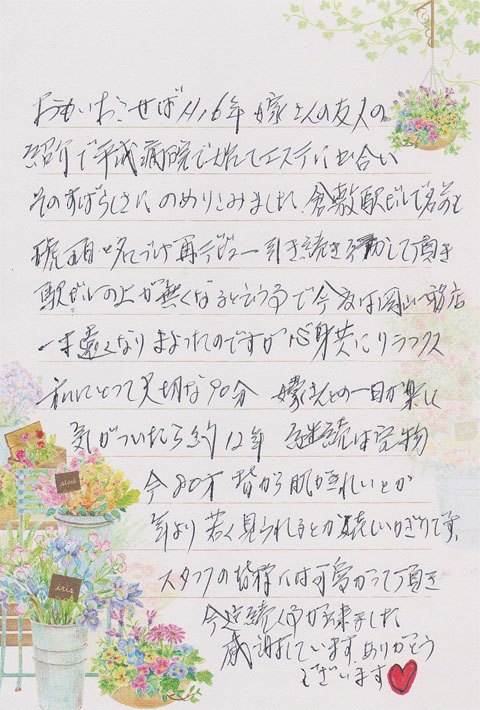 おもいおこせば H16年 嫁さんの友人の
紹介で平成病院で始めてエステに出合い
そのすばらしさに のめりこみました。倉敷駅ビルで名前も
琥珀と名づけ再デビュー 引き続き して頂き
駅ビルの上が無くなると云う事で今度は岡山 店
遠くなりまよったのですが 心身共にリラックス
私にとって大切な90分 嫁さんとの一日が楽しく
気がついたら約12年 継続は宝物
今80才 皆から肌がきれいとか
年より若く見られるとか嬉しいかぎりです。
スタッフの皆様には可愛がって頂き
今迄続く事が出来ました
感謝しています。ありがとう
ございます
stock
iris